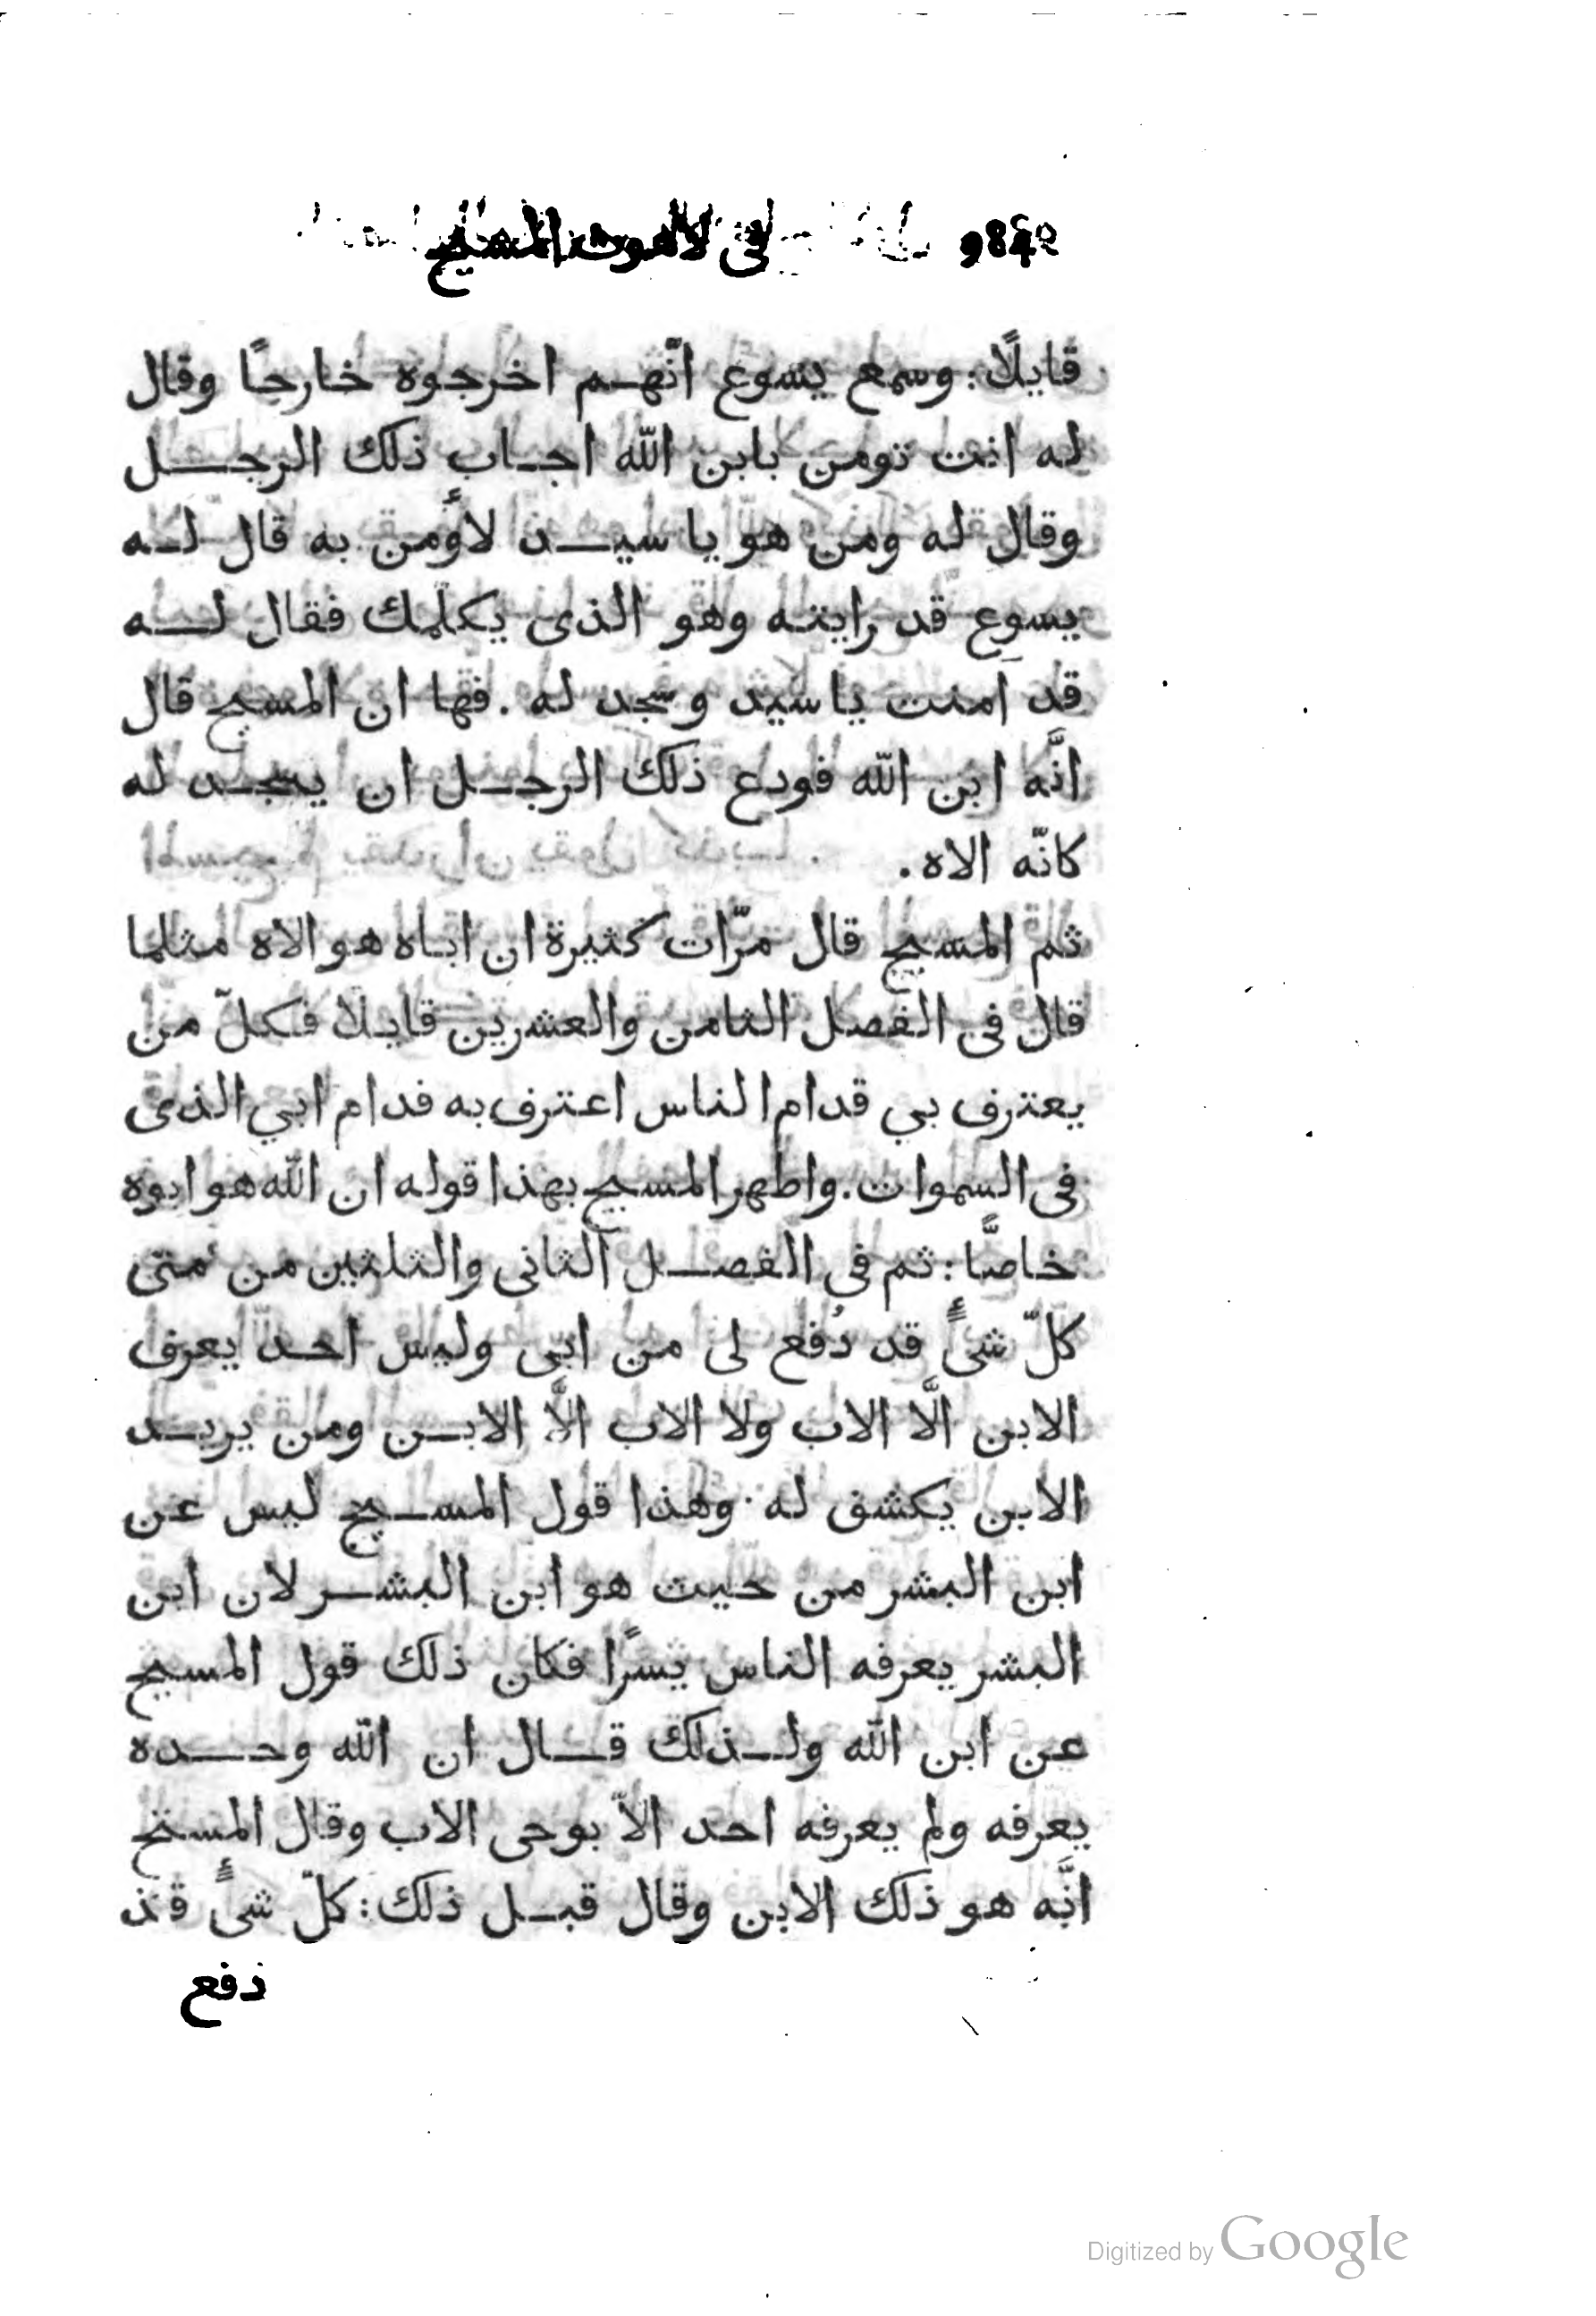 في لاهوت المسيح
قايلًا: وسمع يسوع انّهم اخرجوه خارجًا وقال
له انت تومن بابن الله اجاب ذلك الرجل
وقال له ومن هو يا سيد لأومن به قال له
يسوع قد رايته وهو الذى يكلّمك فقال له
قد آمنت يا سيد وسجد له. فها ان المسيح قال
انَّه ابن الله فودع ذلك الرجل ان يسجد له
كانّه الاه.
ثم المسيح قال مرّات كثيرة ان اباه هو الاه مثلما
قال فى الفصل الثامن والعشرين قايلا فكلّ من
يعترف بي قدام الناس اعترف به قدام ابي الذى
فى السموات. واظهر المسيح بهذا قوله ان الله هو ابوه
خاصًّا: ثم فى الفصل الثانى والثلثين من متى
كلّ شىًٔ قد دُفع لى من ابى وليس احد يعرف
الابن الَّا الاب ولا الاب الَّا الابن ومن يريد
الابن يكشف له. وهذا قول المسيح ليس عن
ابن البشر من حيث هو ابن البشر لان ابن
البشر يعرفه الناس يسرًا فكان ذلك قول المسيح
عن ابن الله ولذلك قال ان الله وحده
يعرفه ولم يعرفه احد الّا بوحى الاب وقال المسيح
انَّه هو ذلك الابن وقال قبل ذلك: كلّ شىًٔ قد
دفع
Digitized by Google